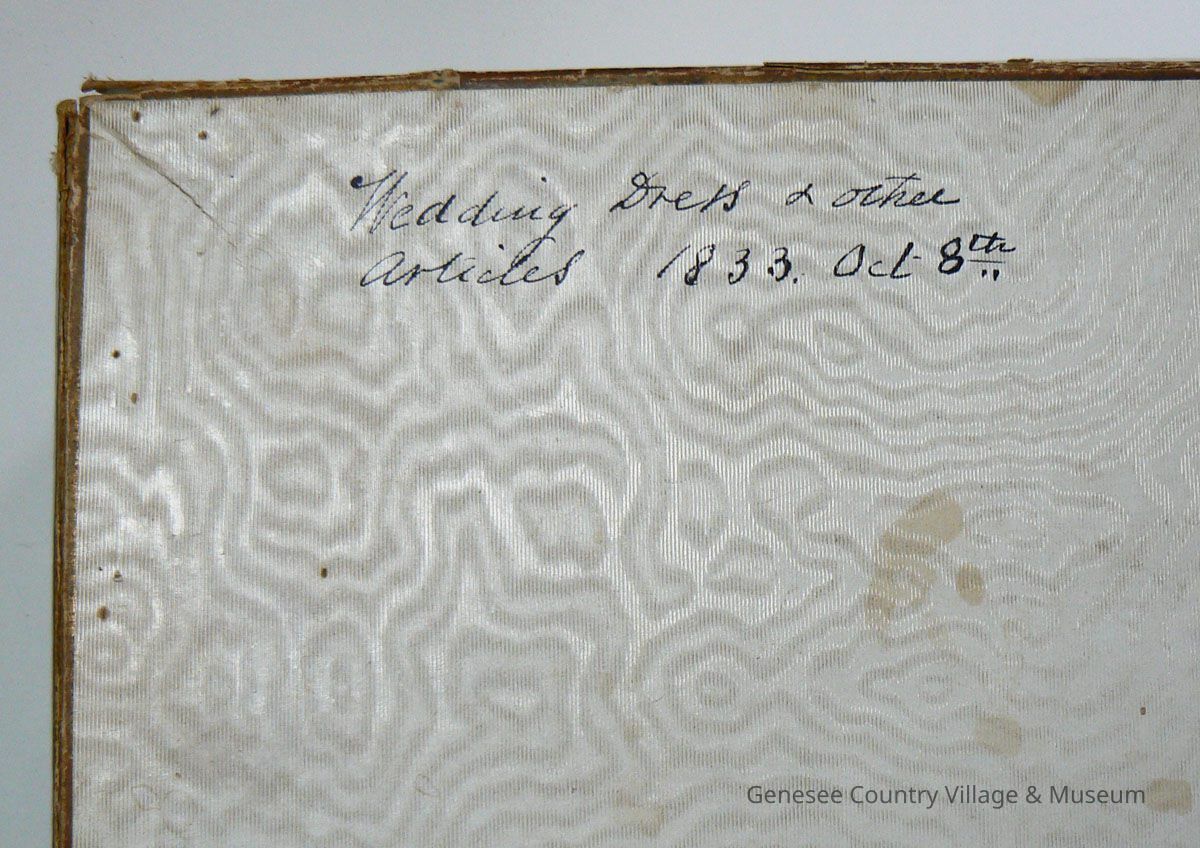 Wedding Dress & other
Articles 1833. Oct 8th
Genesee Country Village & Museum